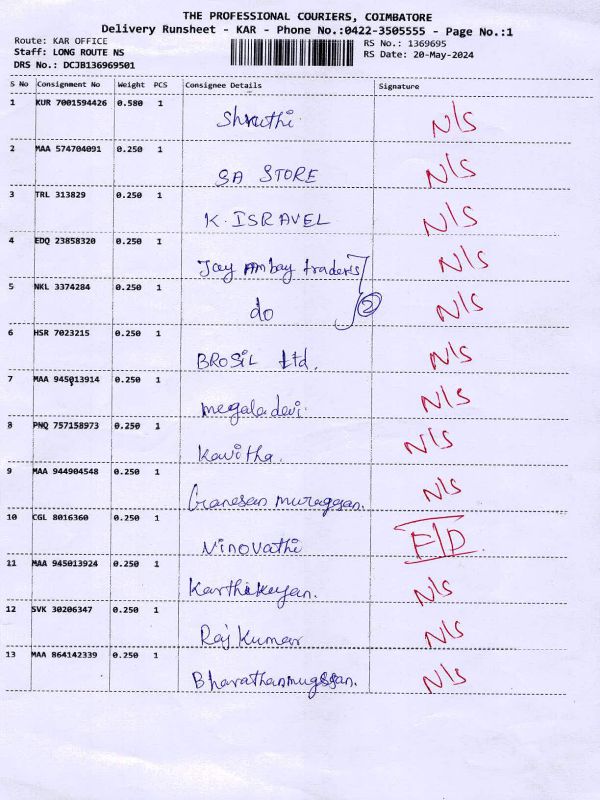 THE PROFESSIONAL COURIERS, COIMBATORE
Delivery Runsheet - KAR - Phone No.:0422-3505555 - Page No.:1
Route: KAR OFFICE RS No.: 1369695
Staff: LONG ROUTE NS RS Date: 20-May-2024
DRS No.: DCJB136969501
S No Consignment No Weight PCS Consignee Details Signature
1 KUR 7001594426 0.580 1 Shruthi N/S
2 MAA 574704091 0.250 1 SA STORE N/S
3 TRL 313829 0.250 1 K. ISRAVEL N/S
4 EDQ 23858320 0.250 1 Jay Ambay traders N/S
5 NKL 3374284 0.250 1 do 2 N/S
6 HSR 7023215 0.250 1 BROSIL Ltd. N/S
7 MAA 945013914 0.250 1 megaladevi N/S
8 PNQ 757158973 0.250 1 Kavitha. N/S
9 MAA 944904548 0.250 1 Ganesan murugesan. N/S
10 CGL 8016360 0.250 1 Ninovathi F/D
11 MAA 945013924 0.250 1 Karthikeyan. N/S
12 SVK 30206347 0.250 1 Raj Kumar N/S
13 MAA 864142339 0.250 1 N/S